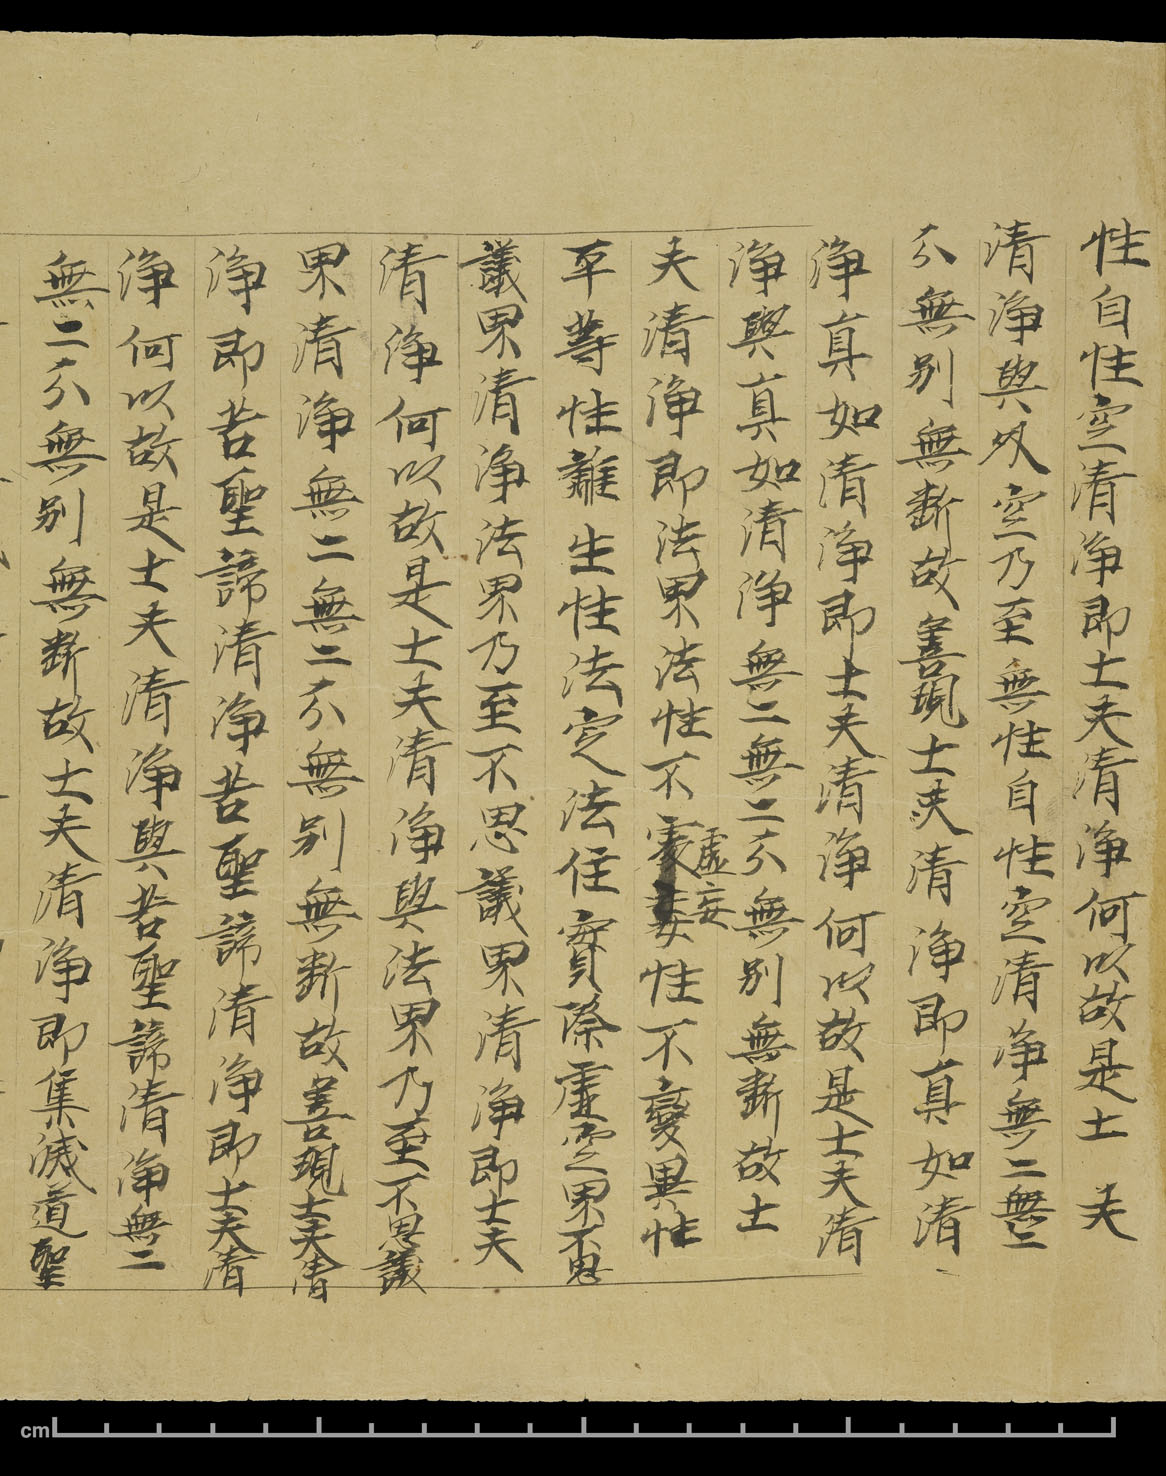 性自性空清淨即士夫清淨何以故是士夫
清淨與外空乃至無性自性空清淨無二無二
分無別無斷故善現士夫清淨即真如清
淨真如清淨即士夫清淨何以故是士夫清
淨與真如清淨無二無二分無別無斷故士
夫清淨即法界法性不虛妄性不變異性
平等性離生性法定法住實際虛空界不思
議界清淨法界乃至不思議界清淨即士夫
清淨何以故是士夫清淨與法界乃至不思議
界清淨無二無二分無別無斷故善現士夫清
淨即苦聖諦清淨苦聖諦清淨即士夫清
淨何以故是士夫清淨與苦聖諦清淨無二
無二分無別無斷故士夫清淨即集滅道聖
cm